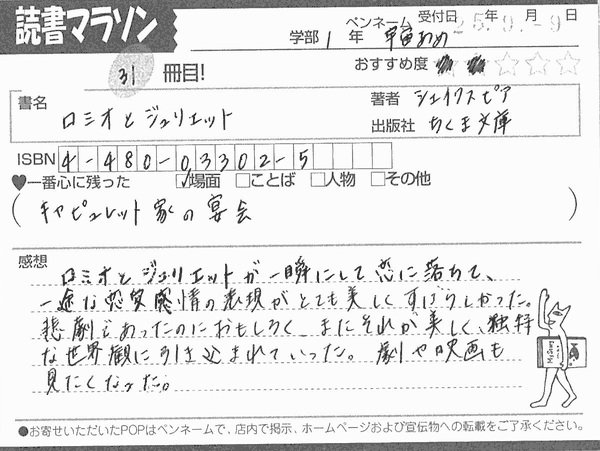 読書マラソン
ペンネーム 受付日 年 月 日
25.9.-9
学部 1 年
31 冊目!
おすすめ度 ★★☆☆☆
書名 ロミオとジュリエット
著者 シェイクスピア
出版社 ちくま文庫
ISBN 4-480-03302-5
♥一番心に残った ☑場面 □ことば □人物 □その他
(キャピュレット家の宴会)
感想
ロミオとジュリエットが一瞬にして恋に落ちて、
一途な恋愛感情の表現がとても美しくすばらしかった。
悲劇であったのにおもしろく、またそれが美しく、独特
な世界観に引き込まれていった。劇や映画も
見たくなった。
●お寄せいただいたPOPはペンネームで、店内で掲示、ホームページおよび宣伝物への転載をご了承ください。